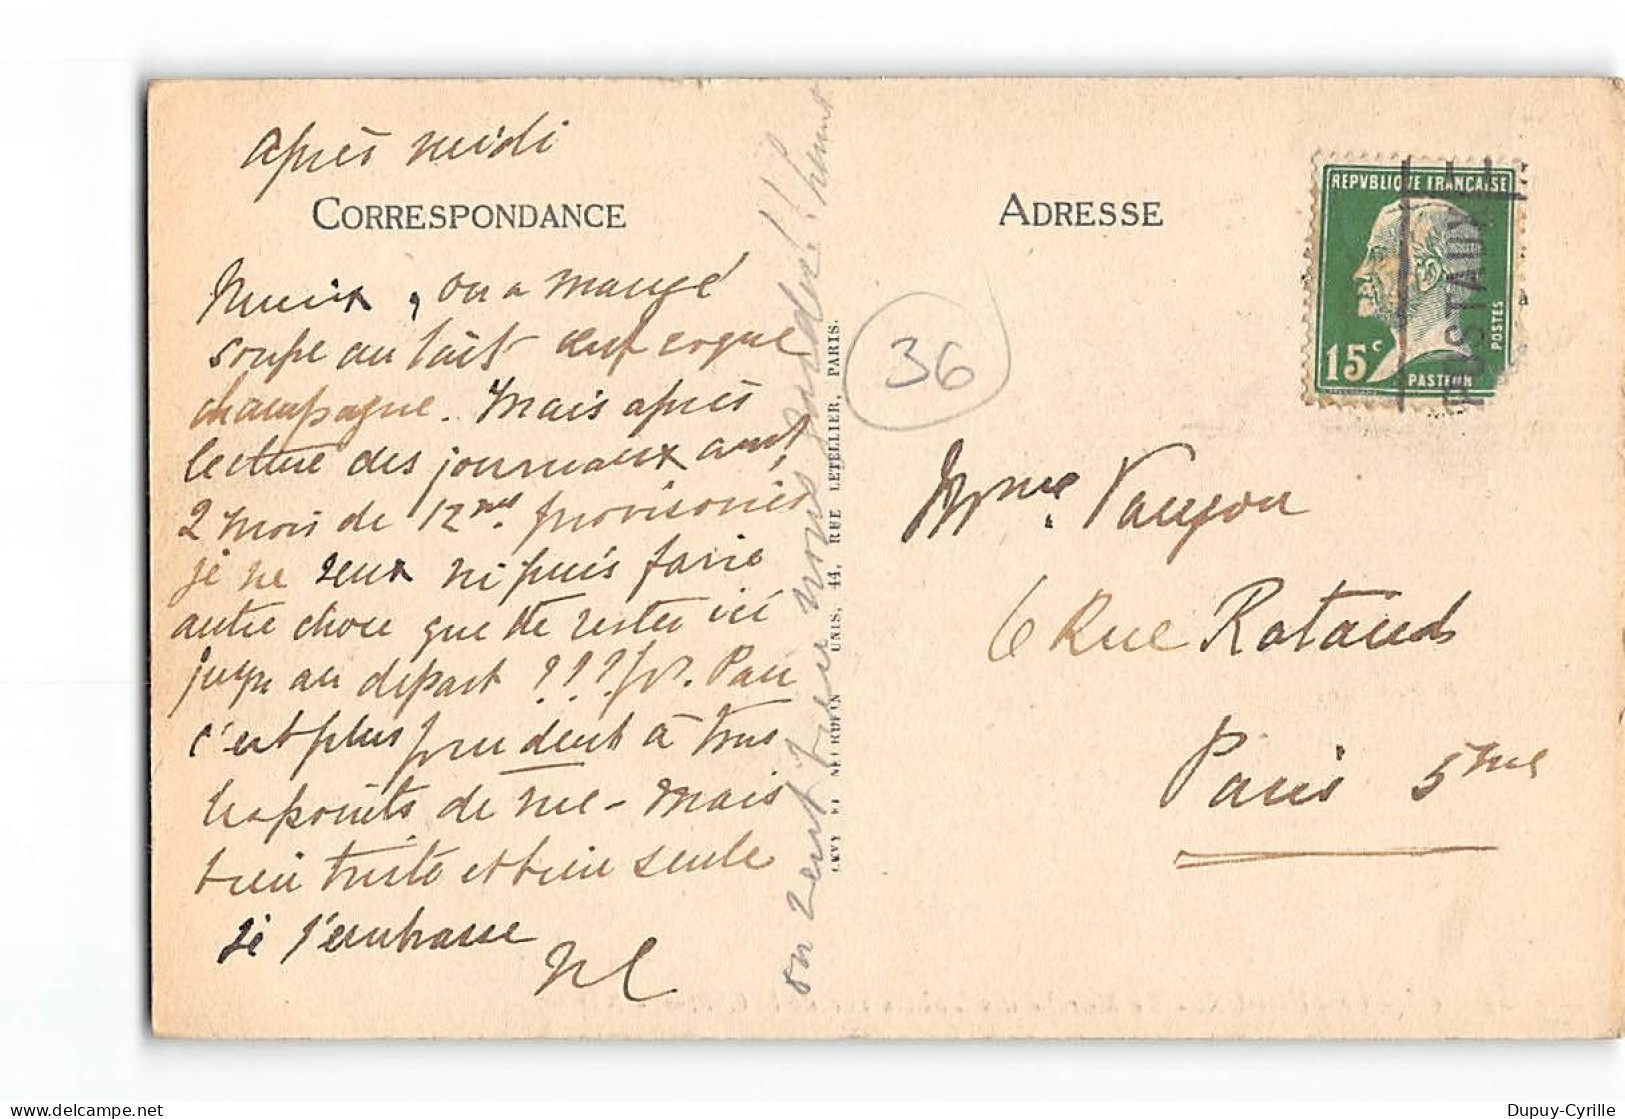 après midi
CORRESPONDANCE
Mieux, on a mangé
soupe au lait œuf coque
champagne. Mais après
lecture des journaux
2 mois de 12 provisoires
je ne veux ni puis faire
autre chose que de rester ici
jusqu'au départ ??? pr. Pau
c'est plus prudent à tous
les points de vue - Mais
bien triste et bien seule
Je t'embrasse
on veut bien nous garder!!
LEVY ET NEURDEIN RÉUNIS, 44, RUE LETELLIER, PARIS.
36
ADRESSE
REPVBLIQVE FRANCAISE
POSTES
15c
PASTEUR
Mme. Vaugon
6 Rue Rataud
Paris 5me
Dupuy-Cyrille